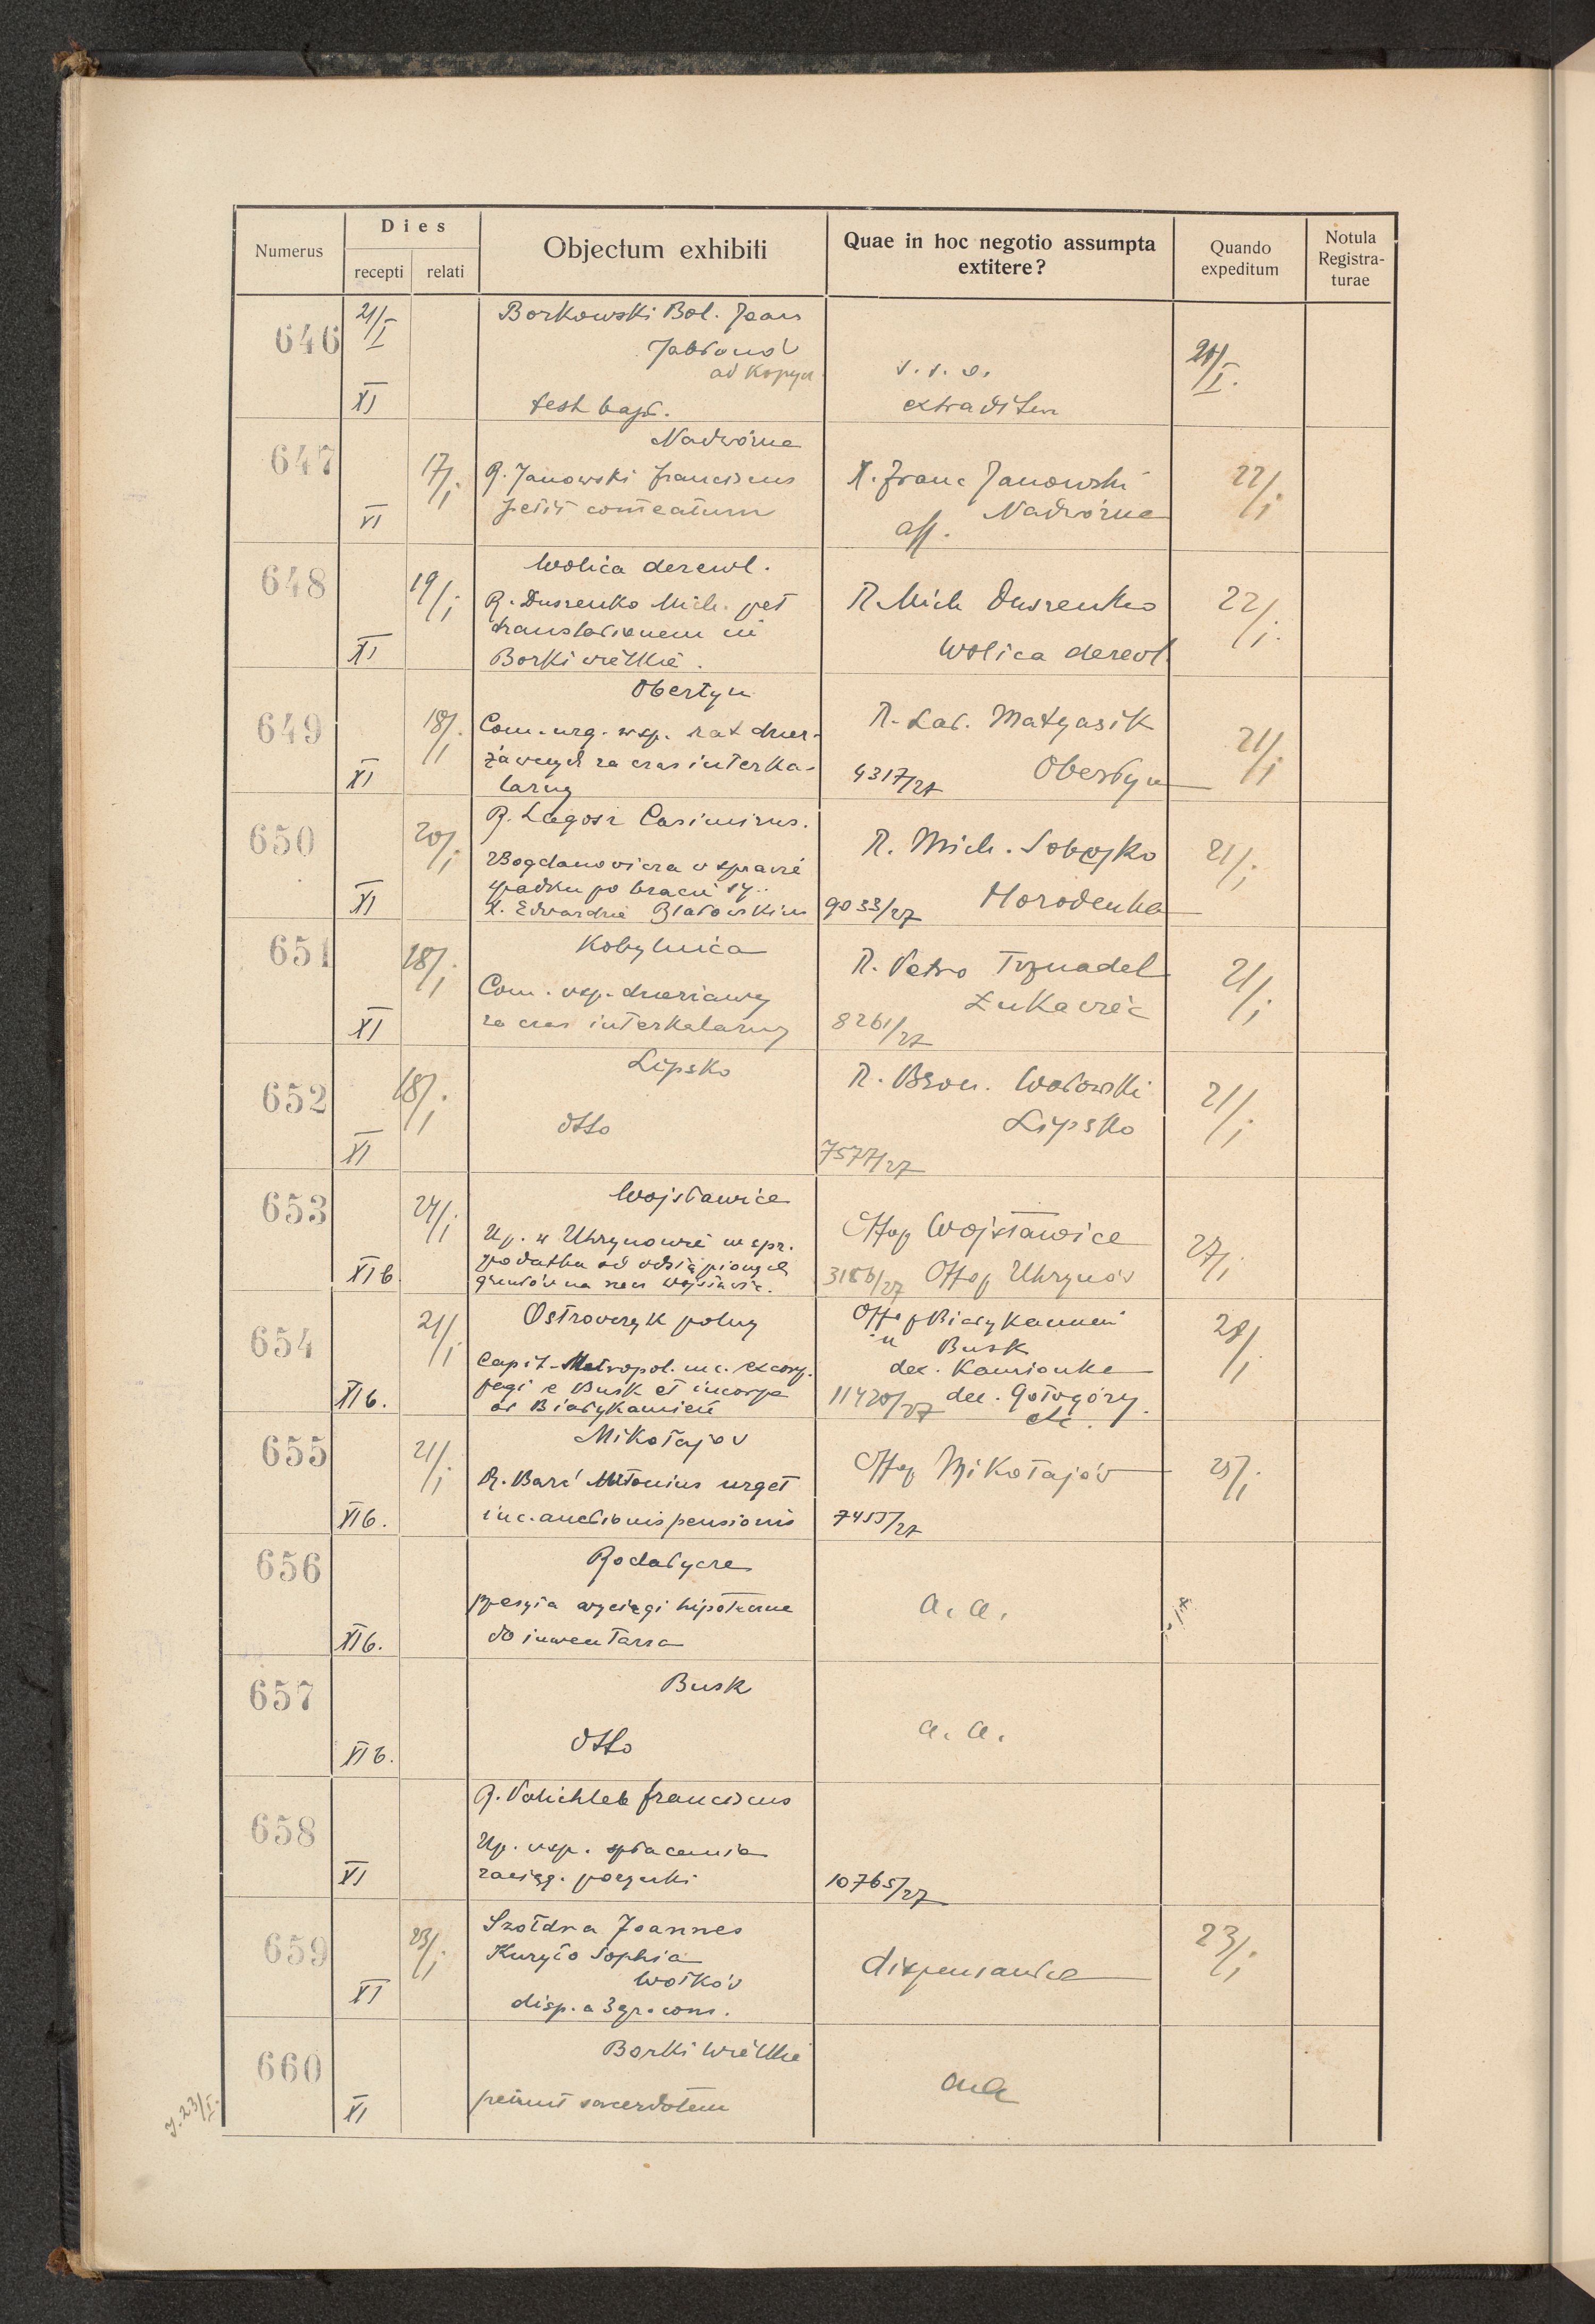 Numerus
Dies
recepti
relati
Objectum exhibiti
Quae in hoc negotio assumpta
extitere?
Quando
expeditum
Notula
Registra-
turae
646
21/I
XI
Borkowski Bol. Joan
Jabłonów
ad Kopycz
test bapt.
extraditur
647
17/I
XI
Nadwórna
R. Janowski Franciscus
petit comeatum
X. Franc Janowski
Nadwórna
aff.
22/I
648
19/I
XI
Wolica derewl.
R. Duszenko Mich. pet
translationem in
Borki wielkie.
R. Mich Duszenko
Wolica derewl.
22/I.
649
18/I.
XI
Obertyn
Com. urg. wsp. rat dzier-
żawnych za czas interka-
larny
R. Lad. Matyasik
4317/27 Obertyn
21/I
650
20/I
XI
R. Łagosz Casimirus.
Bogdanowicza w sprawie
spadku po bracie sp.
X. Edwardzie
R. Mich. Sobejko
9033/27 Horodenka
21/I
651
18/I
XI
Kobylnica
Com. wsp. dzierżawy
za czas interkalarny
R. Petro Trznadel
Łukawiec
8261/27
21/I
652
18/I.
XI
Lipsko
dtto
R. Bron. Wołowski
Lipsko
7577/27
21/I
653
24/I
XIb
Wojsławice
Up. w Uhrynowie w spr.
podatku od odstąpionych
gruntów na rzecz Wojsławic.
Offop Wojsławice
3186/27 Offop Uhrynów
27/I.
654
21/I
XIb.
Ostrowczyk polny
Capit. Metropol. inc. excorp.
pagi e Busk et incorp
ad Białykamień
Offop Białykamień
" Busk
dec. Kamionka
11420/27 dec. Gołogóry.
etc.
28/I
655
21/I
XIb.
Mikołajów
R. Baré Antonius urget
inc. auctionis pensionis
Offop Mikołajów
7455/27
25/I.
656
XIb.
Rodatycze
przesyła wyciągi hipoteczne
do inwentarza
a. a.
657
XIb.
Busk
dtto
a. a.
658
XI
R. Polichleb Franciscus
Up. wsp. spłacania
zaciąg. pożyczki
10765/27
659
23/I
XI
Szołdra Joannes
Kuryło Sophia
Wołków
disp. a 3 gr. cons.
dispensantur
23/I
660
XI
Borki Wielkie
petunt sacerdotem
aa
J. 23/I.